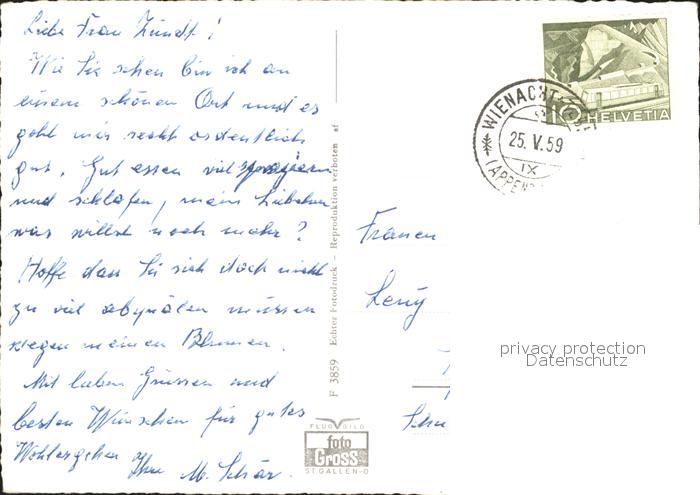 Liebe Frau Zündt!
Wie Sie sehen bin ich an
einem schönen Ort und es
geht mir recht ordentlich
gut. Gut essen viel spazieren
und schlafen, mein Liebchen
was willst noch mehr?
Hoffe dass Sie sich doch nicht
zu viel abquälen müssen
wegen meinen Blumen.
Mit lieben Grüssen und
besten Wünschen für gutes
Wohlergehen Ihre M. Schär.
F 3859 Echter Fotodruck - Reproduktion verboten af
FLUGBILD
foto
Gross
ST. GALLEN-O
HELVETIA
10
WIENACHT
25. V. 59
IX
(APPENZ
Frauen
privacy protection
Datenschutz